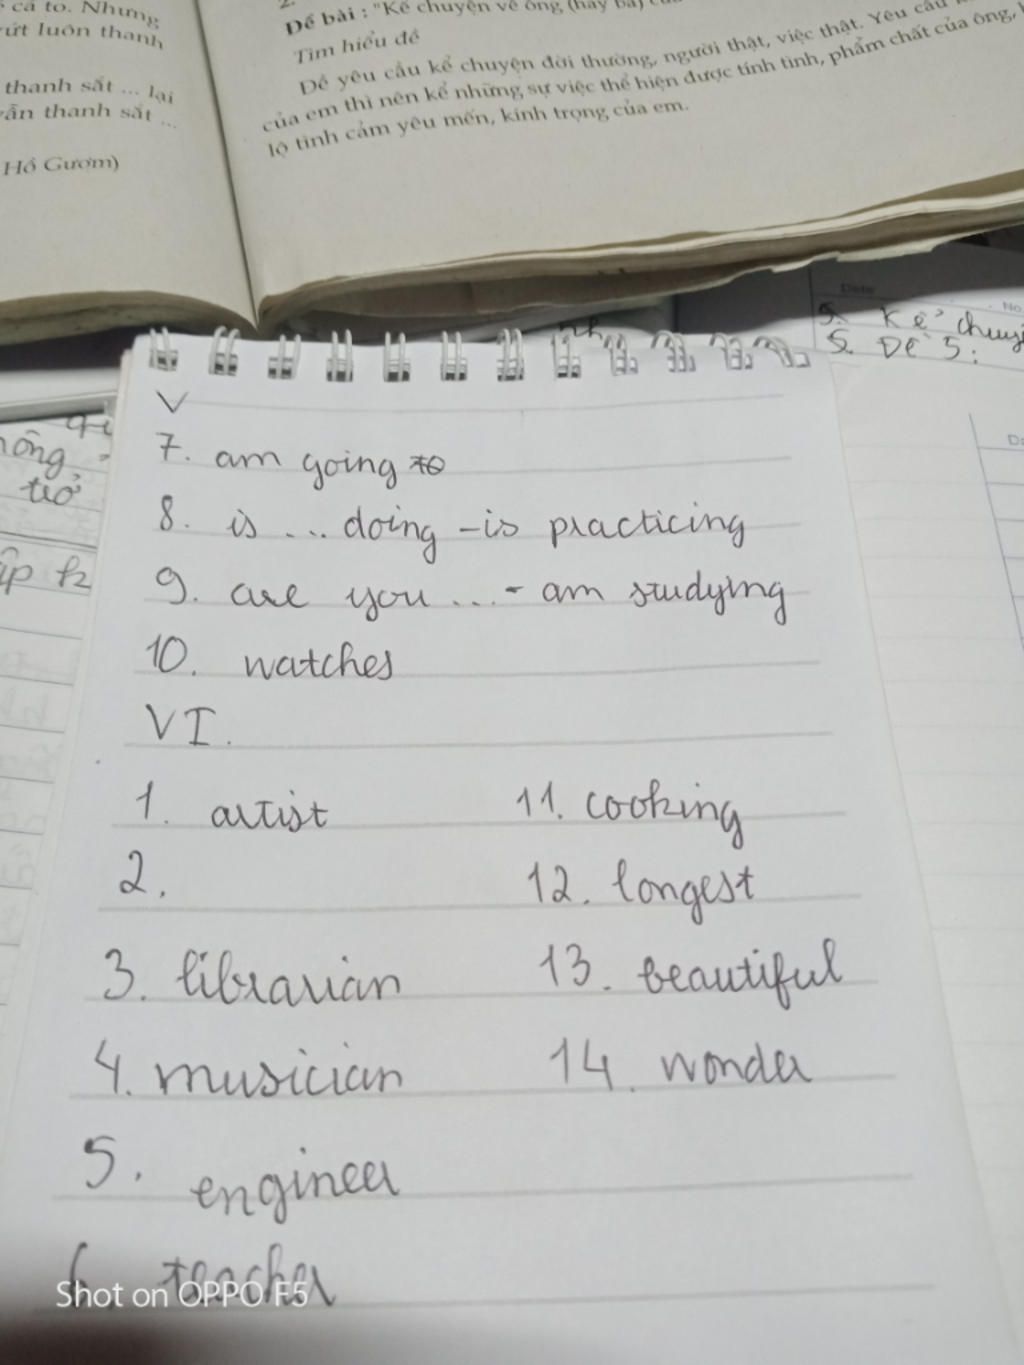 cá to. Nhưng
vứt luôn thanh
thanh sắt ... lại
vẫn thanh sắt ...
Hồ Gươm)
2.
Đề bài : "Kể chuyện về ông (hay bà)
Tìm hiểu đề
Đề yêu cầu kể chuyện đời thường, người thật, việc thật. Yêu cầu
của em thì nên kể những sự việc thể hiện được tính tình, phẩm chất của ông,
lộ tình cảm yêu mến, kính trọng của em.
Date
No
5. Kể chuy
5. Đề 5:
V
7. am going to
8. is ... doing - is practicing
9. are you ... - am studying
10. watches
VI.
1. artist
2.
3. librarian
4. musician
5. engineer
6. teacher
11. cooking
12. longest
13. beautiful
14. wonder
trở
Shot on OPPO F5